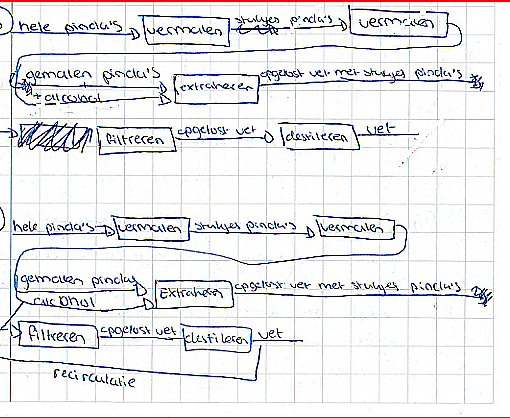 hele pinda's vermalen stukjes pinda's vermalen
gemalen pinda's
+ alcohol extraheren opgelost vet met stukjes pinda's
filtreren opgelost vet destileren vet
hele pinda's vermalen stukjes pinda's vermalen
gemalen pindas
alcohol Extraheren opgelost vet met stukjes pinda's
filtreren opgelost vet destileren vet
recirculatie